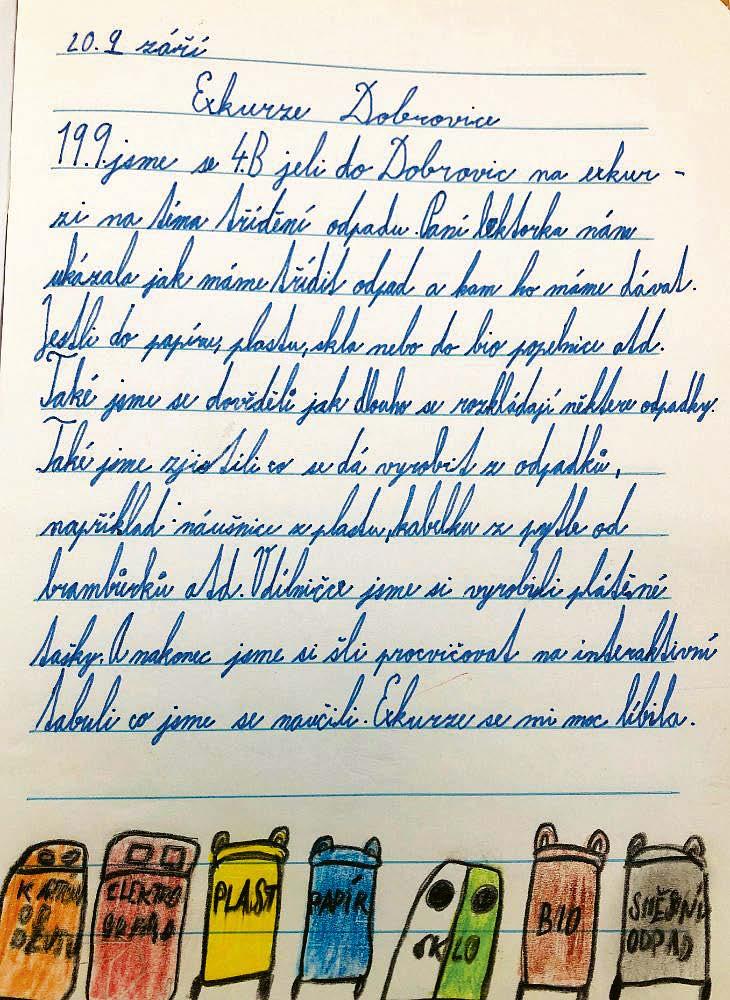 20.9 září
Exkurze Dobrovice
19.9. jsme se 4.B jeli do Dobrovic na exkur-
zi na téma třídění odpadu. Paní lektorka nám
ukázala jak máme třídit odpad a kam ho máme dávat.
Jestli do papíru, plastu, skla nebo do bio popelnice atd.
Také jsme se dověděli jak dlouho se rozkládají některe odpadky.
Také jsme zjistili co se dá vyrobit z odpadků,
například náušnice z plastu, kabelku z pytle od
brambůrků atd. V dílničce jsme si vyrobili plátěné
tašky. A nakonec jsme si šli procvičovat na interaktivní
tabuli co jsme se naučili. Exkurze se mi moc líbila.
KARTON
OD
ELEKTRO
ODPAD
PLAST
PAPÍR
SKLO
BIO
SMĚSNÍ
ODPAD